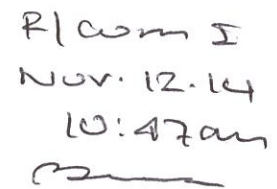 R/Comm I
Nov. 12.14
10:47am